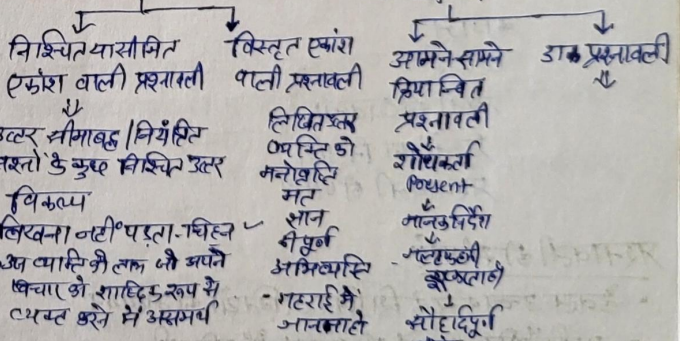 निश्चित या सीमित
एकांश वाली प्रश्नावली
उत्तर सीमाबद्ध / नियंत्रित
प्रश्नों के कुछ निश्चित उत्तर
विकल्प
लिखना नहीं पड़ता - चिह्न ✓
उस व्यक्ति को लाभ जो अपने
विचार को शाब्दिक रूप में
व्यक्त करने में असमर्थ
विस्तृत एकांश
वाली प्रश्नावली
लिखित उत्तर
व्यक्ति की
मनोवृत्ति
मत
ज्ञान
पूर्ण
अभिव्यक्ति
- गहराई में
जानना हो
आमने सामने
क्रियान्वित
प्रश्नावली
शोधकर्ता
Present
मानक निर्देश
सौहार्दपूर्ण
डाक प्रश्नावली